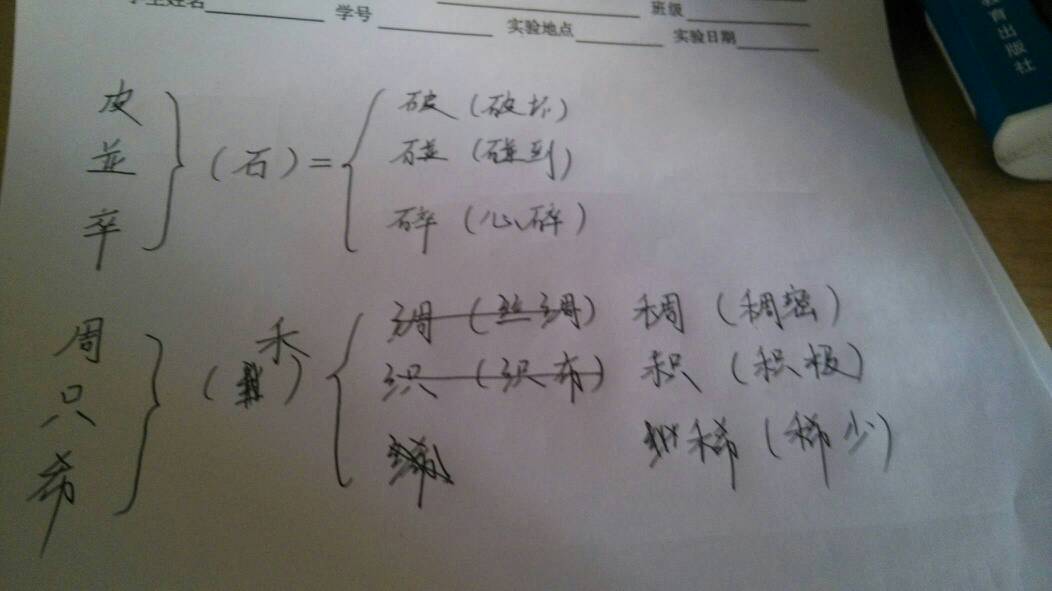 学生姓名 学号 班级
实验地点 实验日期
教育出版社
皮
並
卒
(石)=
破(破坏)
碰(碰到)
碎(心碎)
周
只
希
(禾)
调(丝调) 稠(稠密)
识(识布) 积(积极)
稀(稀少)